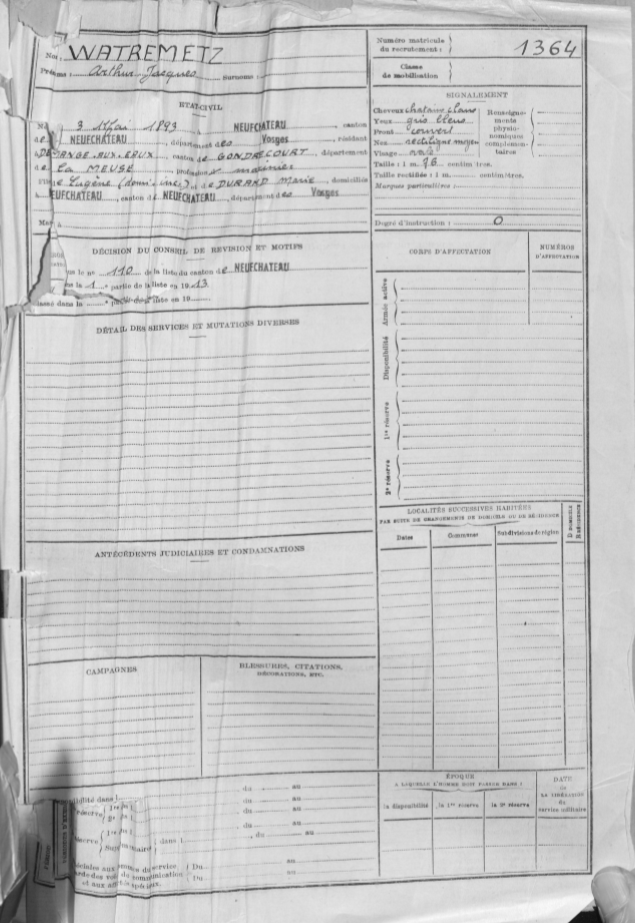 Nom: WATREMETZ
Prénoms: Arthur Jacques Surnoms:
Numéro matricule du recrutement: 1364
Classe de mobilisation
ÉTAT CIVIL
3 Mai 1893 à NEUFCHATEAU, canton
de NEUFCHATEAU, département des Vosges, résidant
DEMANGE-AUX-EAUX, canton de GONDRECOURT, département
de La MEUSE, profession d marinier
Eugène et de DURAND Marie, domiciliés
à NEUFCHATEAU, canton de NEUFCHATEAU, département des Vosges
SIGNALEMENT
Cheveux chatains clairs
Yeux gris bleus
Front couvert
Nez rectiligne moyen
Visage
Renseignements physionomiques complémentaires
Taille: 1 m. 76 centimètres.
Taille rectifiée: 1 m. centimètres.
Marques particulières:
Degré d'instruction: 0
DÉCISION DU CONSEIL DE RÉVISION ET MOTIFS
le no 110 de la liste du canton de NEUFCHATEAU
1re partie de la liste en 1913
Classé dans la partie de la liste en 19
CORPS D'AFFECTATION
NUMÉROS D'AFFECTATION
Armée active
Disponibilité
1re réserve
2e réserve
DÉTAIL DES SERVICES ET MUTATIONS DIVERSES
LOCALITÉS SUCCESSIVES HABITÉES
PAR SUITE DE CHANGEMENTS DE DOMICILE OU DE RÉSIDENCE
Dates Communes Subdivisions de région D DOMICILE R RÉSIDENCE
ANTÉCÉDENTS JUDICIAIRES ET CONDAMNATIONS
CAMPAGNES
BLESSURES, CITATIONS,
DÉCORATIONS, ETC.
ÉPOQUE
A LAQUELLE L'HOMME DOIT PASSER DANS:
la disponibilité la 1re réserve la 2e réserve
DATE de LA LIBÉRATION du service militaire
du au
du au
du au
du au
du au
du service Du au
Du au
et aux